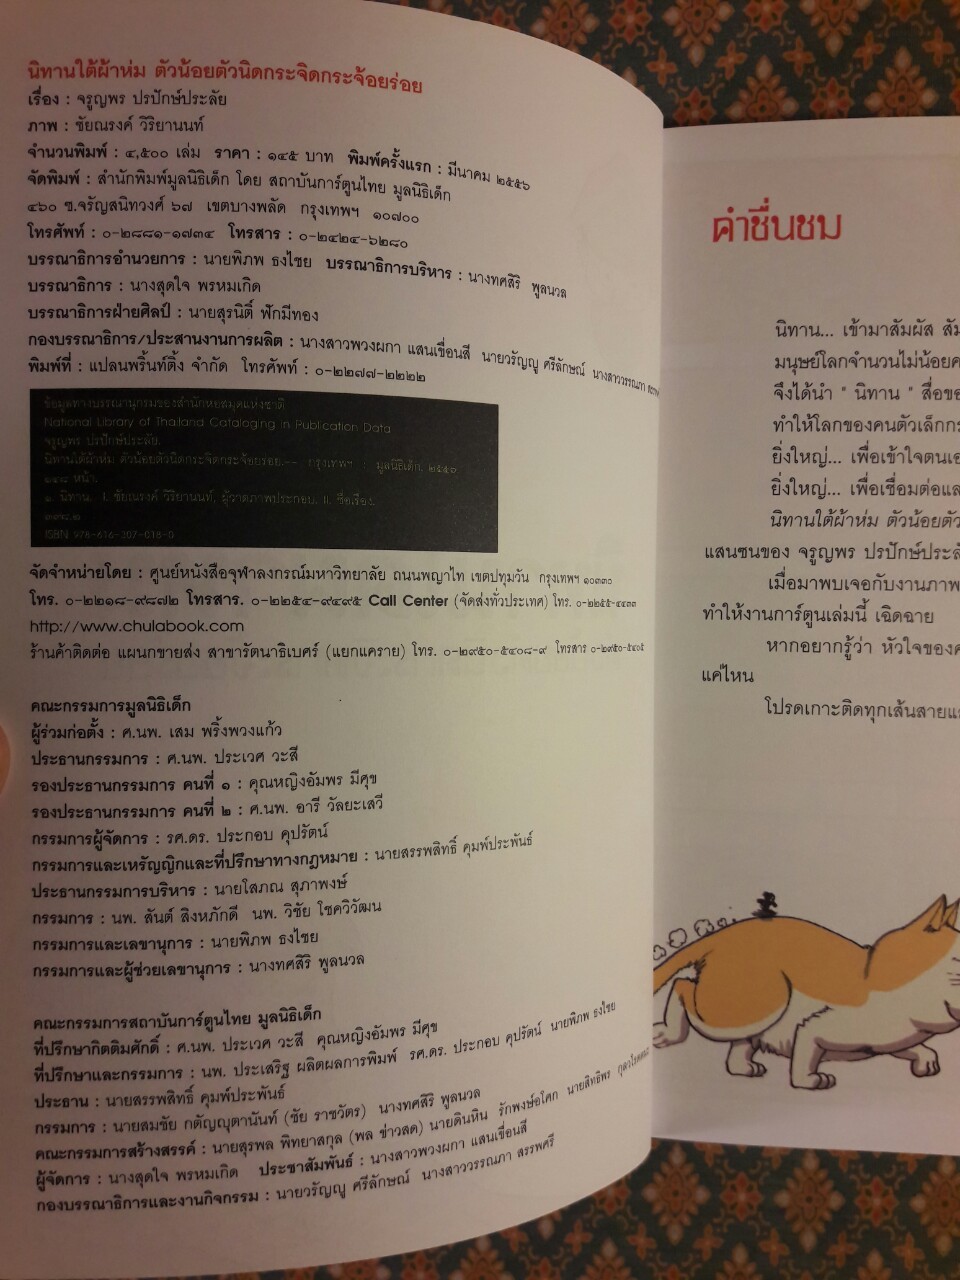 นิทานใต้ผ้าห่ม ตัวน้อยตัวนิดกระจิดกระจ้อยร่อย
เรื่อง : จรูญพร ปรปักษ์ประลัย
ภาพ : ชัยณรงค์ วิริยานนท์
จำนวนพิมพ์ : ๔,๕๐๐ เล่ม ราคา : ๑๔๕ บาท พิมพ์ครั้งแรก : มีนาคม ๒๕๕๖
จัดพิมพ์ : สำนักพิมพ์มูลนิธิเด็ก โดย สถาบันการ์ตูนไทย มูลนิธิเด็ก
๔๖๐ ซ.จรัญสนิทวงศ์ ๖๗ เขตบางพลัด กรุงเทพฯ ๑๐๗๐๐
โทรศัพท์ : ๐-๒๘๘๑-๑๗๓๔ โทรสาร : ๐-๒๔๒๔-๖๒๘๐
บรรณาธิการอำนวยการ : นายพิภพ ธงไชย บรรณาธิการบริหาร : นางทศสิริ พูลนวล
บรรณาธิการ : นางสุดใจ พรหมเกิด
บรรณาธิการฝ่ายศิลป์ : นายสุรนิติ์ ฟักมีทอง
กองบรรณาธิการ/ประสานงานการผลิต : นางสาวพวงผกา แสนเขื่อนสี นายวรัญญู ศรีลักษณ์ นางสาววรรณภา
พิมพ์ที่ : แปลนพริ้นท์ติ้ง จำกัด โทรศัพท์ : ๐-๒๒๗๗-๒๒๒๒
ข้อมูลทางบรรณานุกรมของสำนักหอสมุดแห่งชาติ
National Library of Thailand Cataloging in Publication Data
จรูญพร ปรปักษ์ประลัย.
นิทานใต้ผ้าห่ม ตัวน้อยตัวนิดกระจิดกระจ้อยร่อย.-- กรุงเทพฯ : มูลนิธิเด็ก, ๒๕๕๖
๒๔๘ หน้า.
๑. นิทาน. I. ชัยณรงค์ วิริยานนท์, ผู้วาดภาพประกอบ. II. ชื่อเรื่อง.
๓๙๘.๒
ISBN 978-616-307-018-0
จัดจำหน่ายโดย : ศูนย์หนังสือจุฬาลงกรณ์มหาวิทยาลัย ถนนพญาไท เขตปทุมวัน กรุงเทพฯ ๑๐๓๓๐
โทร. ๐-๒๒๑๘-๙๘๗๒ โทรสาร. ๐-๒๒๕๔-๙๔๙๕ Call Center (จัดส่งทั่วประเทศ) โทร. ๐-๒๒๕๕-๔๔๓๓
http://www.chulabook.com
ร้านค้าติดต่อ แผนกขายส่ง สาขารัตนาธิเบศร์ (แยกแคราย) โทร. ๐-๒๙๕๐-๕๔๐๘-๙ โทรสาร ๐-๒๙๕๐-๕๔๐๕
คณะกรรมการมูลนิธิเด็ก
ผู้ร่วมก่อตั้ง : ศ.นพ. เสม พริ้งพวงแก้ว
ประธานกรรมการ : ศ.นพ. ประเวศ วะสี
รองประธานกรรมการ คนที่ ๑ : คุณหญิงอัมพร มีศุข
รองประธานกรรมการ คนที่ ๒ : ศ.นพ. อารี วัลยะเสวี
กรรมการผู้จัดการ : รศ.ดร. ประกอบ คุปรัตน์
กรรมการและเหรัญญิกและที่ปรึกษาทางกฎหมาย : นายสรรพสิทธิ์ คุมพ์ประพันธ์
ประธานกรรมการบริหาร : นายโสภณ สุภาพงษ์
กรรมการ : นพ. สันต์ สิงหภักดี นพ. วิชัย โชควิวัฒน
กรรมการและเลขานุการ : นายพิภพ ธงไชย
กรรมการและผู้ช่วยเลขานุการ : นางทศสิริ พูลนวล
คณะกรรมการสถาบันการ์ตูนไทย มูลนิธิเด็ก
ที่ปรึกษากิตติมศักดิ์ : ศ.นพ. ประเวศ วะสี คุณหญิงอัมพร มีศุข
ที่ปรึกษาและกรรมการ : นพ. ประเสริฐ ผลิตผลการพิมพ์ รศ.ดร. ประกอบ คุปรัตน์ นายพิภพ ธงไชย
ประธาน : นายสรรพสิทธิ์ คุมพ์ประพันธ์
กรรมการ : นายสมชัย กตัญญุตานันท์ (ชัย ราชวัตร) นางทศสิริ พูลนวล
คณะกรรมการสร้างสรรค์ : นายสุรพล พิทยาสกุล (พล ข่าวสด) นายดินหิน รักพงษ์อโศก นายสิทธิพร
ผู้จัดการ : นางสุดใจ พรหมเกิด ประชาสัมพันธ์ : นางสาวพวงผกา แสนเขื่อนสี
กองบรรณาธิการและงานกิจกรรม : นายวรัญญู ศรีลักษณ์ นางสาววรรณภา สรรพศรี
คำชื่นชม
นิทาน... เข้ามาสัมผัส
มนุษย์โลกจำนวนไม่น้อย
จึงได้นำ " นิทาน " สื่อ
ทำให้โลกของคนตัวเล็ก
ยิ่งใหญ่... เพื่อเข้าใจตนเอ
ยิ่งใหญ่... เพื่อเชื่อมต่อแล
นิทานใต้ผ้าห่ม ตัวน้อยตัว
แสนซนของ จรูญพร ปรปักษ์ประลั
เมื่อมาพบเจอกับงานภาพ
ทำให้งานการ์ตูนเล่มนี้ เฉิดฉาย
หากอยากรู้ว่า หัวใจของ
แค่ไหน
โปรดเกาะติดทุกเส้นสาย